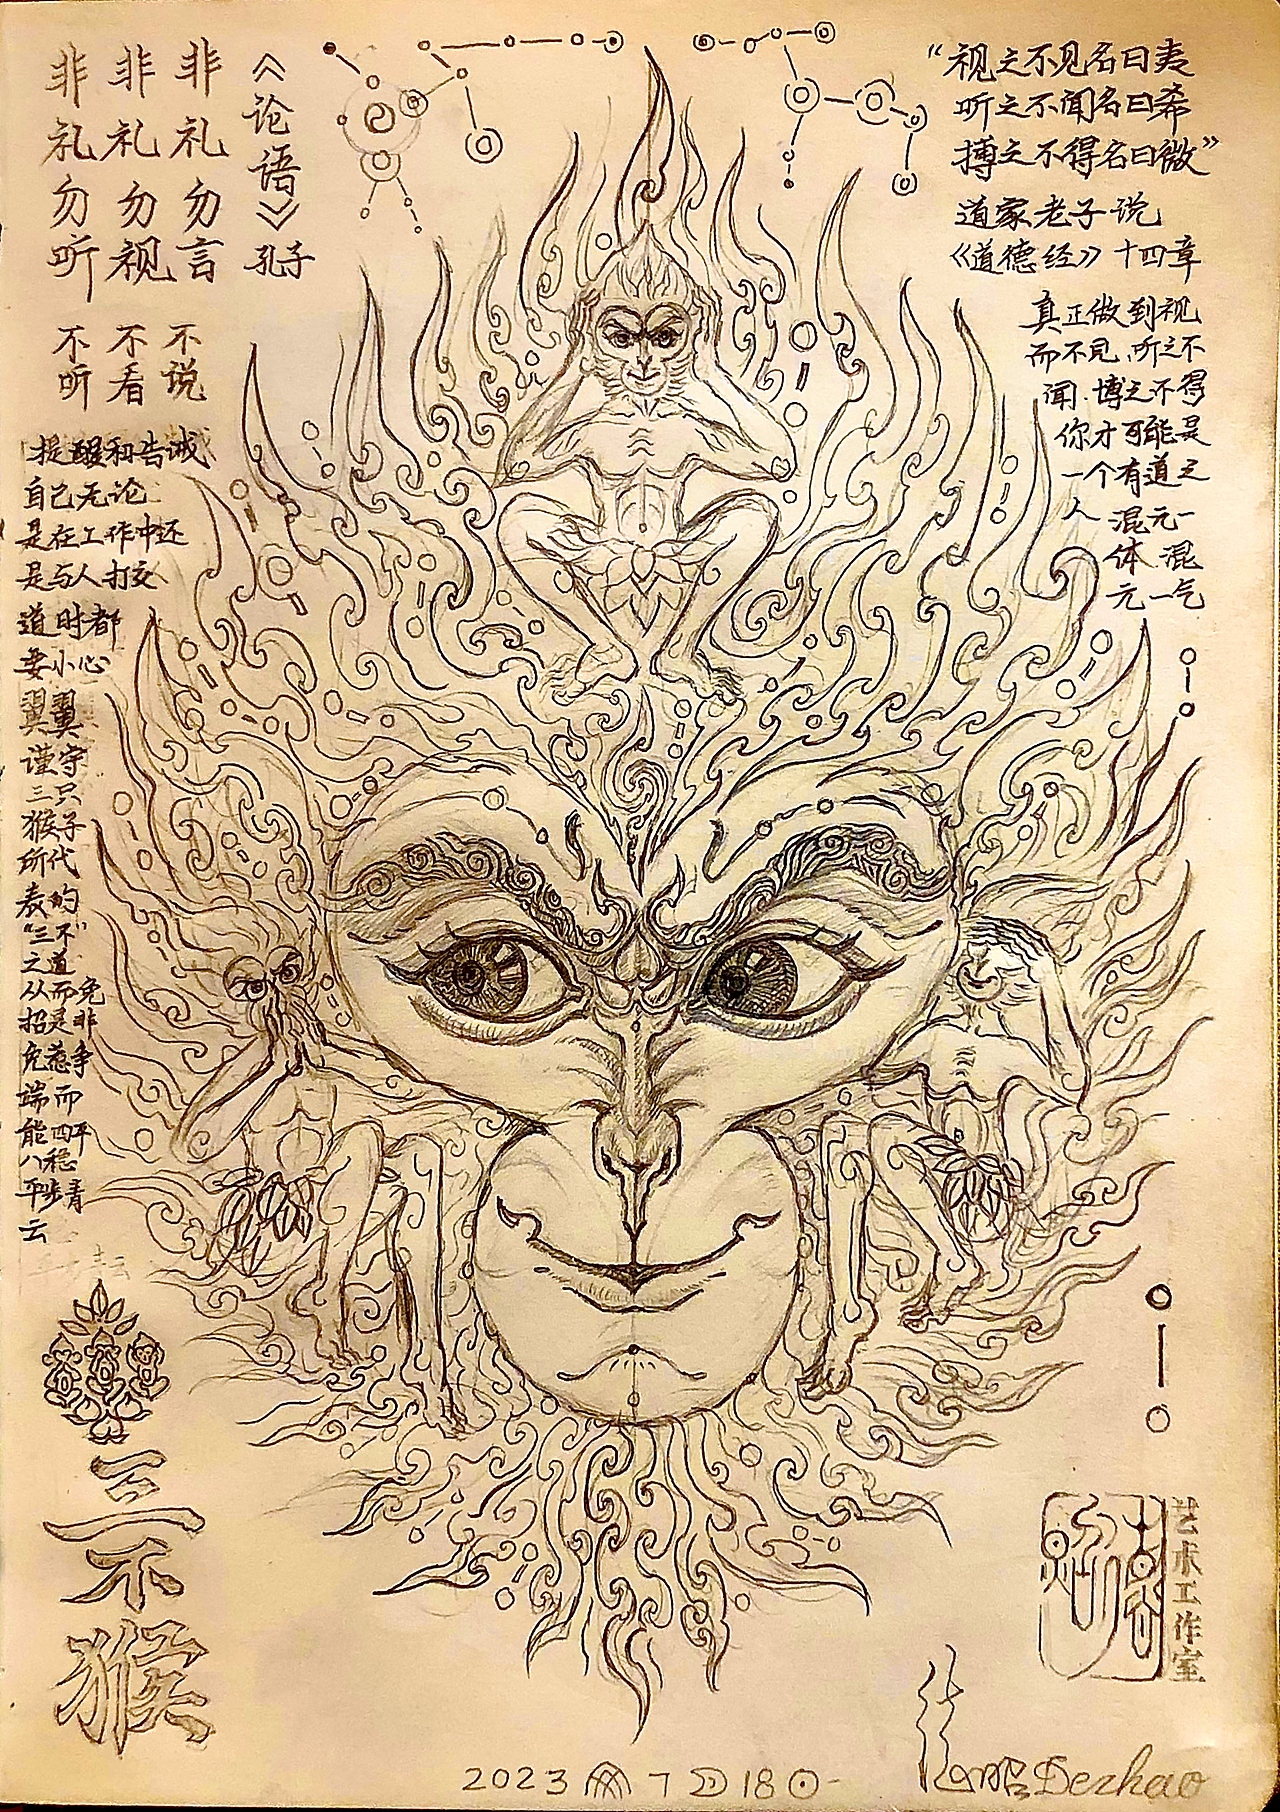 《论语》孔子
非礼勿言
非礼勿视
非礼勿听
不说
不看
不听
提醒和告诫
自己无论
是在工作中还
是与人打交
道时都
要小心
翼翼
谨守
三只
猴子
所代
表的
“三不”
之道
从而免
招是非
免惹争
端而
能四平
八稳
平步青
云
三不猴
“视之不见名曰夷
听之不闻名曰希
搏之不得名曰微”
道家老子说
《道德经》十四章
真正做到视
而不见,听之不
闻.博之不得
你才可能是
一个有道之
人 混元一
体 混
元一气
艺术工作室
2023 7 18
Dezhao